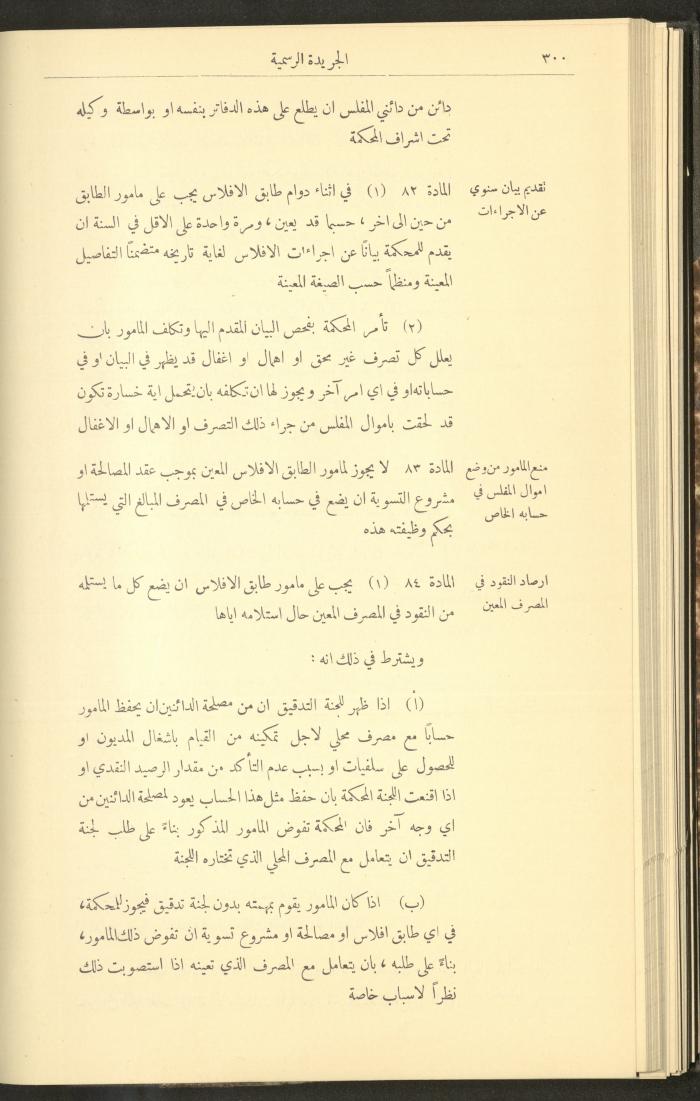 الجريدة الرسمية ٣٠٠
دائن من دائني المفلس ان يطلع على هذه الدفاتر بنفسه او بواسطة وكيله
تحت اشراف المحكمة
تقديم بيان سنوي
عن الاجراءات
المادة ٨٢ (١) في اثناء دوام طابق الافلاس يجب على مامور الطابق
من حين الى اخر ، حسبما قد يعين ، ومرة واحدة على الاقل في السنة ان
يقدم للمحكمة بيانًا عن اجراءات الافلاس لغاية تاريخه متضمنًا التفاصيل
المعينة ومنظماً حسب الصيغة المعينة
(٢) تأمر المحكمة بفحص البيان المقدم اليها وتكلف المامور بان
يعلل كل تصرف غير محق او اهمال او اغفال قد يظهر في البيان او في
حساباته او في اي امر آخر ويجوز لها ان تكلفه بان يتحمل اية خسارة تكون
قد لحقت باموال المفلس من جراء ذلك التصرف او الاهمال او الاغفال
منع المامور من وضع
اموال المفلس في
حسابه الخاص
المادة ٨٣ لا يجوز لمامور الطابق الافلاس المعين بموجب عقد المصالحة او
مشروع التسوية ان يضع في حسابه الخاص في المصرف المبالغ التي يستلمها
بحكم وظيفته هذه
ارصاد النقود في
المصرف المعين
المادة ٨٤ (١) يجب على مامور طابق الافلاس ان يضع كل ما يستلمه
من النقود في المصرف المعين حال استلامه اياها
ويشترط في ذلك انه :
(أ) اذا ظهر للجنة التدقيق ان من مصلحة الدائنين ان يحفظ المامور
حسابًا مع مصرف محلي لاجل تمكينه من القيام باشغال المديون او
للحصول على سلفيات او بسبب عدم التأكد من مقدار الرصيد النقدي او
اذا اقنعت اللجنة المحكمة بان حفظ مثل هذا الحساب يعود لمصلحة الدائنين من
اي وجه آخر فان المحكمة تفوض المامور المذكور بناءً على طلب لجنة
التدقيق ان يتعامل مع المصرف المحلي الذي تختاره اللجنة
(ب) اذا كان المامور يقوم بمهمته بدون لجنة تدقيق فيجوز للمحكمة ،
في اي طابق افلاس او مصالحة او مشروع تسوية ان تفوض ذلك المامور ،
بناءً على طلبه ، بان يتعامل مع المصرف الذي تعينه اذا استصوبت ذلك
نظراً لاسباب خاصة